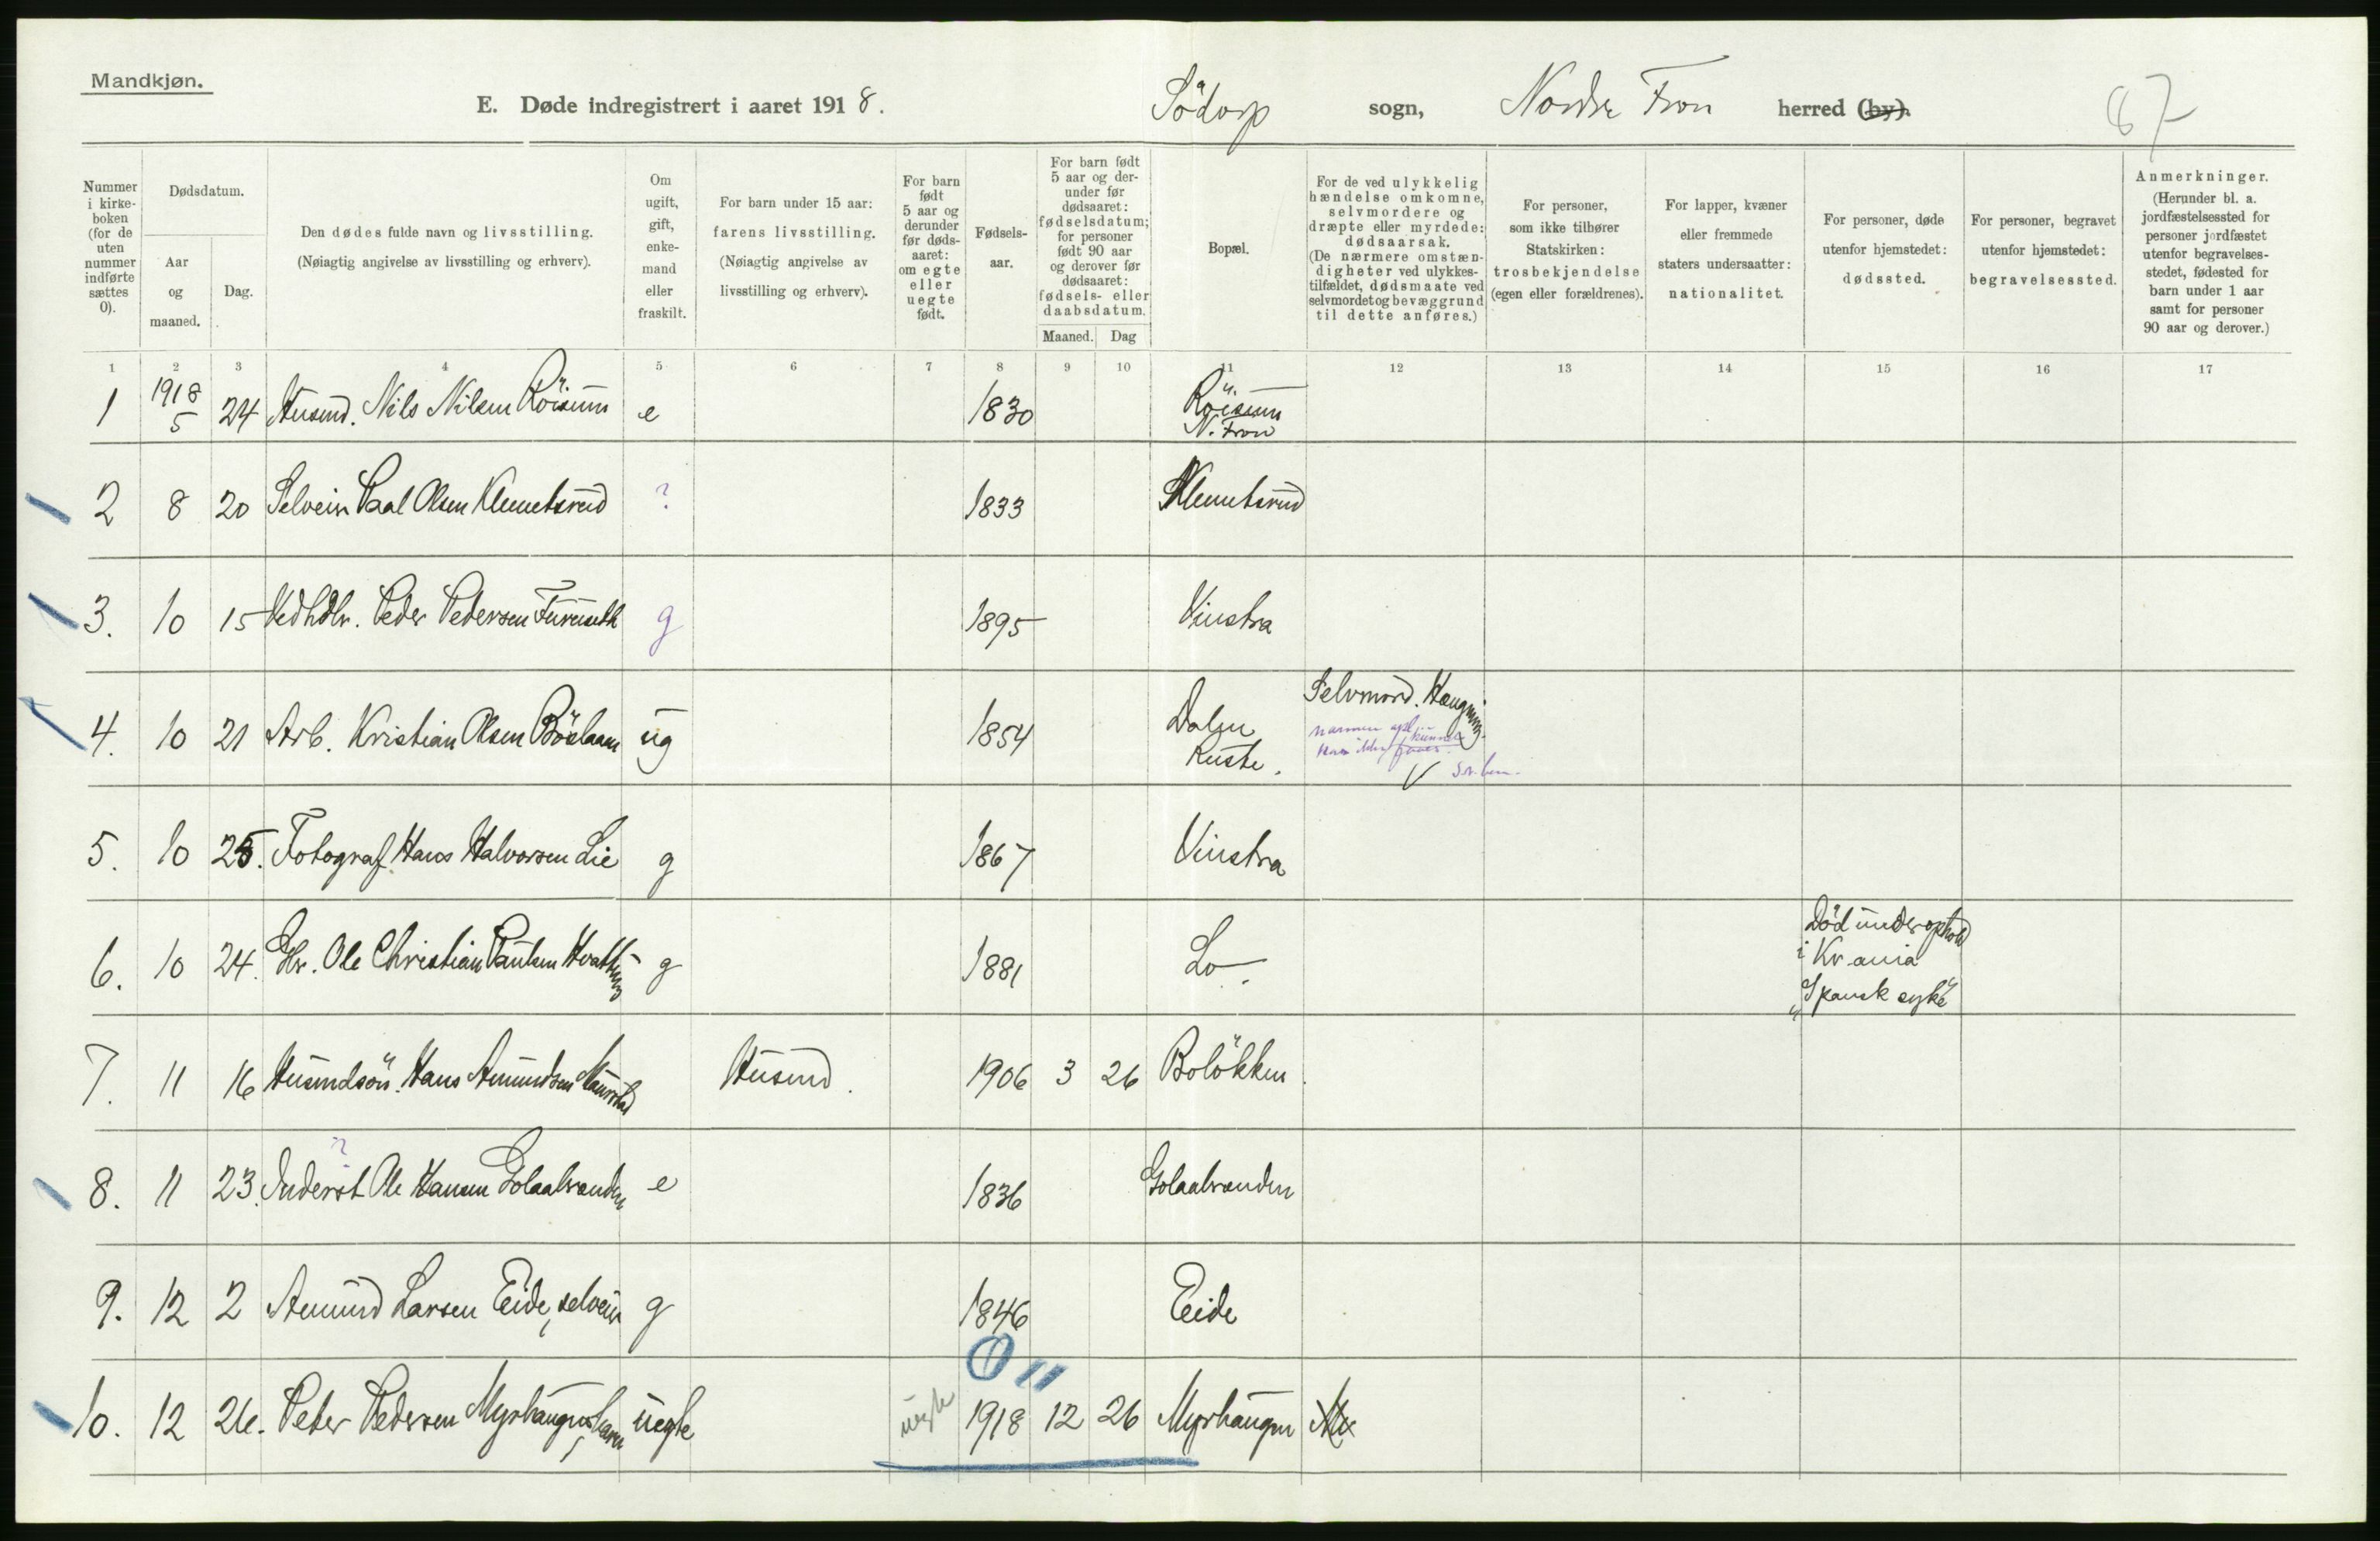 Mandkjøn.
E. Døde indregistrert i aaret 1918. Södorp sogn, Nordre Fron herred (by).
87
Nummer i kirkeboken (for de uten nummer indførte sættes 0).
Dødsdatum.
Aar og maaned.
Dag.
Den dødes fulde navn og livsstilling.
(Nøiagtig angivelse av livsstilling og erhverv).
Om ugift, gift, enkemand eller fraskilt.
For barn under 15 aar: farens livsstilling.
(Nøiagtig angivelse av livsstilling og erhverv).
For barn født 5 aar og derunder før dødsaaret: om egte eller uegte født.
Fødselsaar.
For barn født 5 aar og derunder før dødsaaret: fødselsdatum; for personer født 90 aar og derover før dødsaaret: fødsels- eller daabsdatum.
Maaned. Dag
Bopæl.
For de ved ulykkelig hændelse omkomne, selvmordere og dræpte eller myrdede: dødsaarsak.
(De nærmere omstændigheter ved ulykkestilfældet, dødsmaate ved selvmordet og bevæggrund til dette anføres.)
For personer, som ikke tilhører Statskirken: trosbekjendelse (egen eller forældrenes).
For lapper, kvæner eller fremmede staters undersaatter: nationalitet.
For personer, døde utenfor hjemstedet: dødssted.
For personer, begravet utenfor hjemstedet: begravelsessted.
Anmerkninger.
(Herunder bl. a. jordfæstelsessted for personer jordfæstet utenfor begravelsesstedet, fødested for barn under 1 aar samt for personer 90 aar og derover.)
1 2 3 4 5 6 7 8 9 10 11 12 13 14 15 16 17
1 1918 5 24 Husmd. Nils Nilsen Röisum e 1830 Röisum N. Fron
2 8 20 Selveier Paal Olsen Klemetsrud ? 1833 Klemetsrud
3. 10 15 Vedhdlr. Peder Pedersen Furuseth g 1895 Vinstra
4. 10 21 Arb. Kristian Olsen ug 1854 Dalen Kuste. Selvmord. Hængning.
5. 10 25. Fotograf Hans Halvorsen Lie g 1867 Vinstra
6. 10 24. Gbr. Ole Christian Paulsen Kvatning g 1881 Lo. Död under ophold i Kr.ania "Spansk syke"
7. 11 16 Husmdsön. Hans Amundsen Husmd. 1906 3 26 Bolökken
?
8. 11 23. Inderst Ole Hansen Golaabranden e 1836 Golaabranden
9. 12 2 Amund Larsen Eide, selveier g 1846 Eide
10. 12 26. Peder Pedersen Myrhaugen, barn uegte uegte 1918 12 26 Myrhaugen